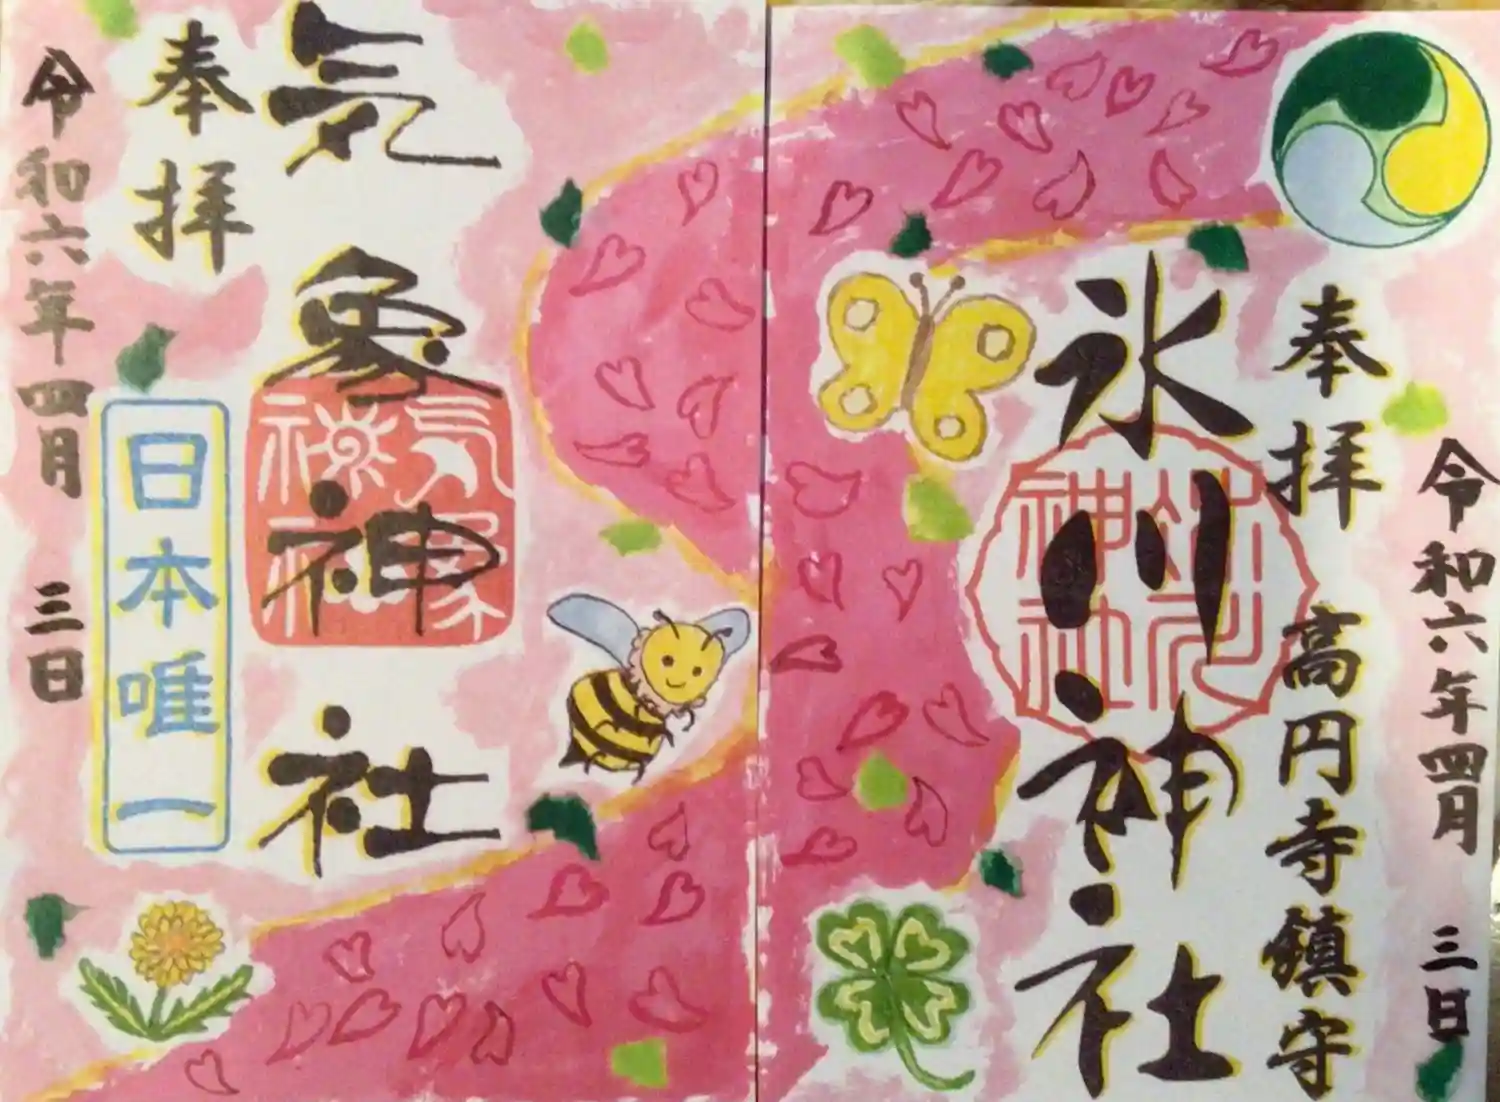 奉拝
高円寺鎮守
氷川神社
氷川神社
令和六年四月 三日
気象神社
気象神社
奉拝
日本唯一
令和六年四月 三日